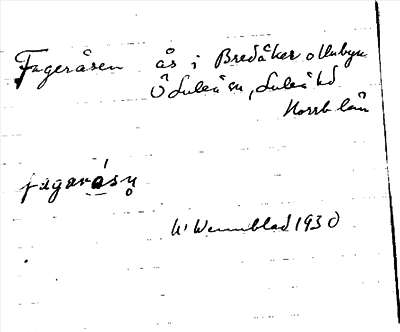 Fageråsen ås i Bredåker o Unbyn
Ö Luleå sn, Luleå hd
Norrb län
fagarásn̥
W Wennblad 1930